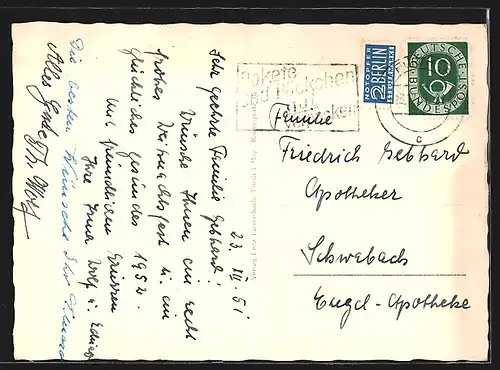 23. XII. 51
Sehr geehrte Familie Gebhard!
Wünsche Ihnen ein recht
frohes Weihnachtsfest u. ein
glückliches gesundes 1952.
Mit freundlichen Grüssen
Ihre Irma Wolf u.
Die besten Wünsche Ihr
Alles Gute
Pakete
Päckchen
NOTOPFER
2 BERLIN
STEUERMARKE
DEUTSCHE
10
BUNDESPOST
c
Familie
Friedrich Gebhard
Apotheker
Schwabach
Engel-Apotheke